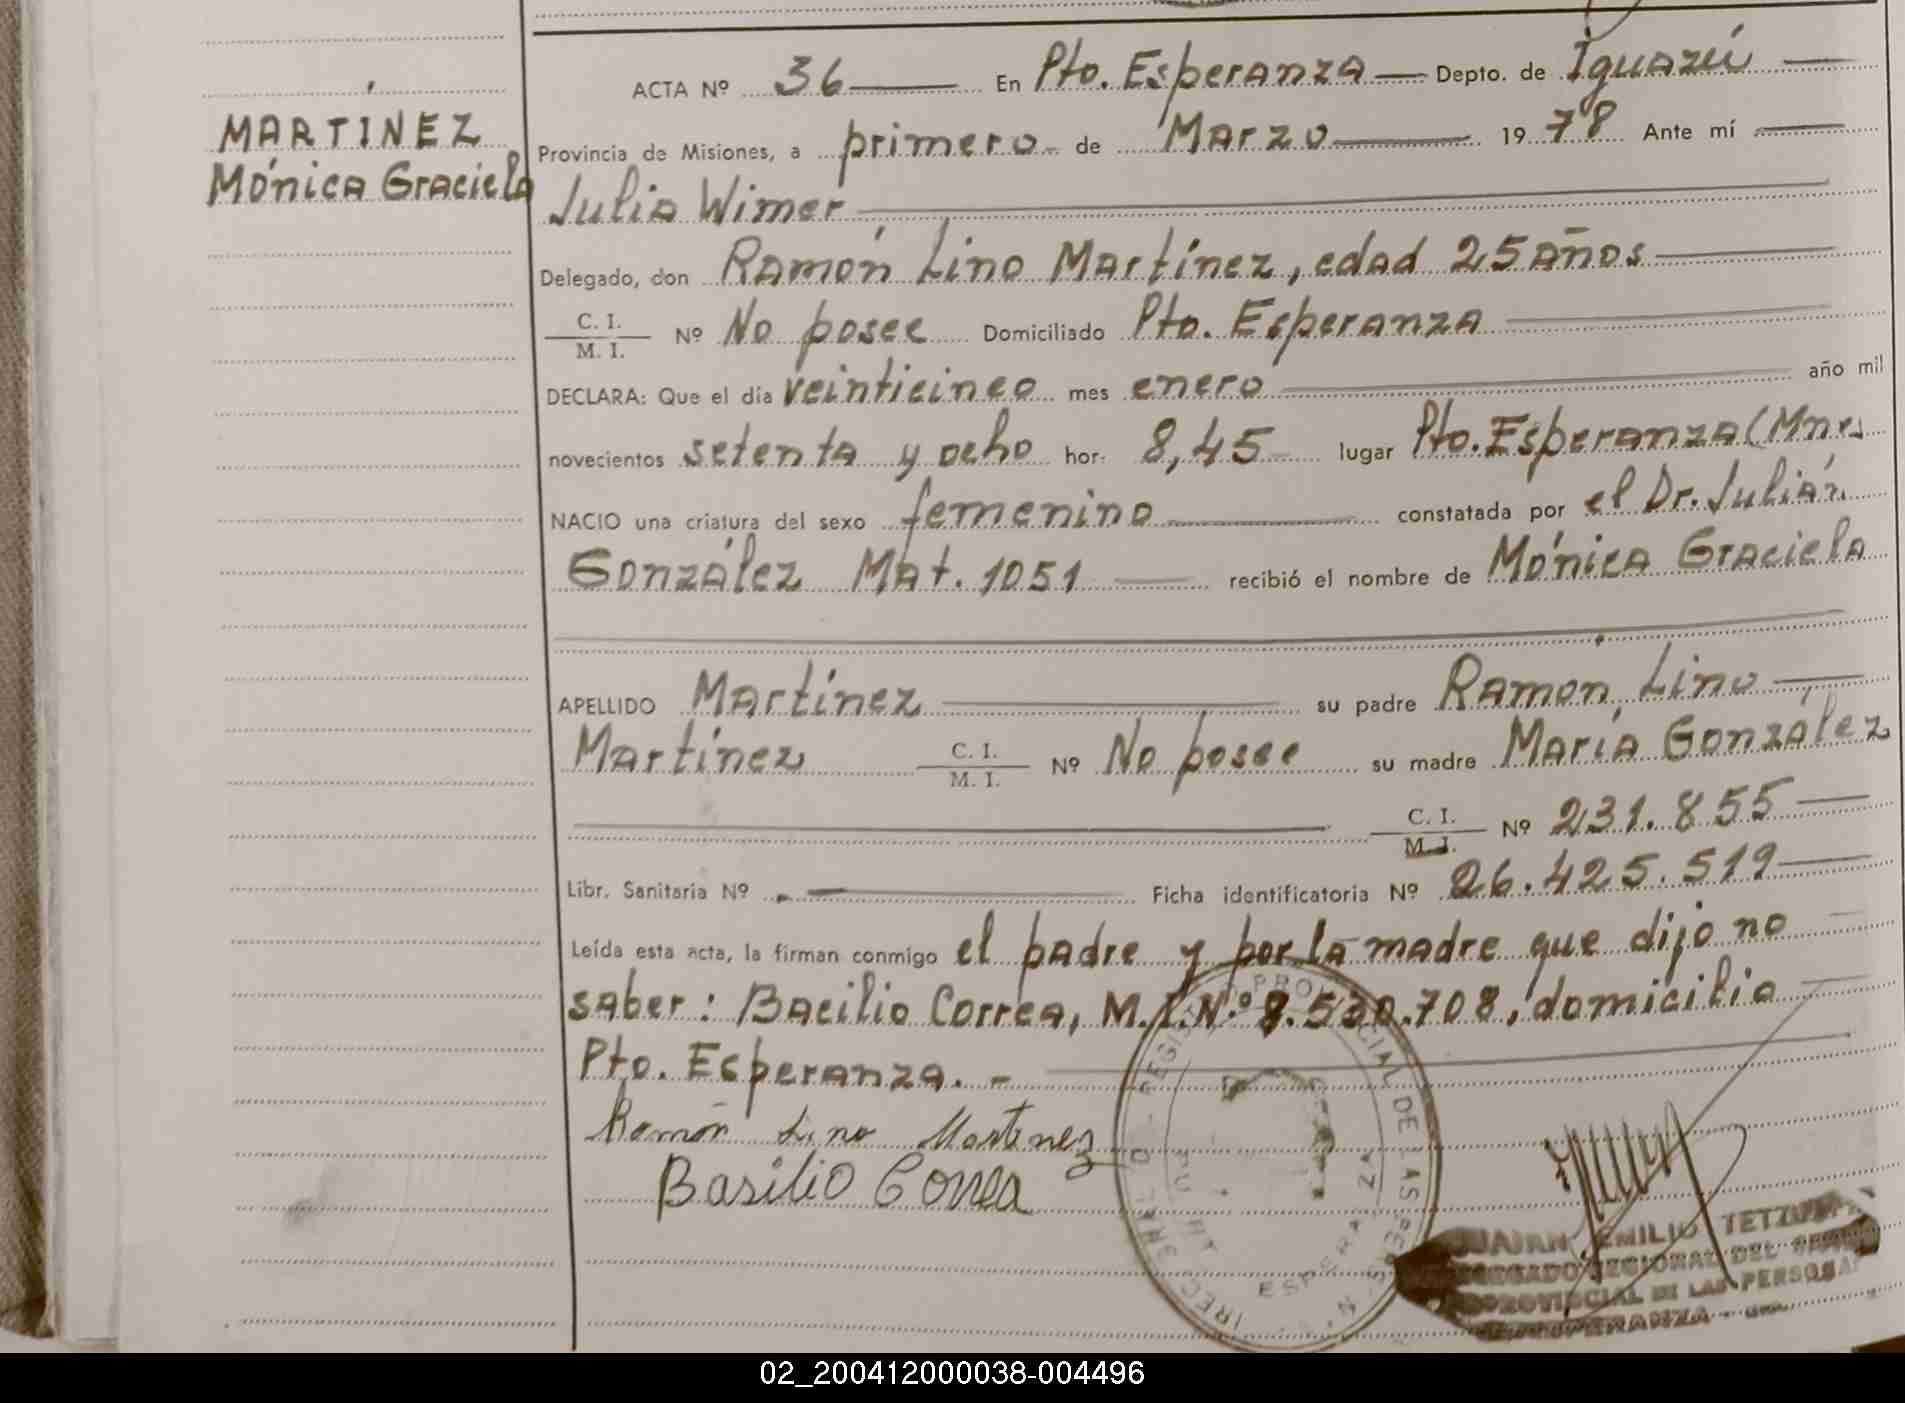 MARTÍNEZ
Mónica Graciela
ACTA Nº 36 En Pto. Esperanza Depto. de Iguazú
Provincia de Misiones, a primero de Marzo 1978 Ante mí
Julia Wimer
Delegado, don Ramón Lino Martínez, edad 25 años
C. I.
M. I. Nº No posee Domiciliado Pto. Esperanza
DECLARA: Que el día veinticinco mes enero año mil
novecientos setenta y ocho hor. 8,45 lugar Pto. Esperanza (Mnes
NACIO una criatura del sexo femenino constatada por el Dr. Julián
González Mat. 1051 recibió el nombre de Mónica Graciela
APELLIDO Martínez su padre Ramón Lino
Martínez C. I. M. I. Nº No posee su madre María González
C. I. M. I. Nº 231.855
Libr. Sanitaria Nº Ficha identificatoria Nº 26.425.519
Leída esta acta, la firman conmigo el padre y por la madre que dijo no
saber: Bacilio Correa, M.I.Nº 8.530.708, domicilio
Pto. Esperanza. -
Ramón Lino Martinez
Basilio Correa
PROVINCIAL DE LAS
ESPERANZA
EMILIO
REGIONAL DEL
PROVINCIAL DE LAS PERSONAS
02_200412000038-004496